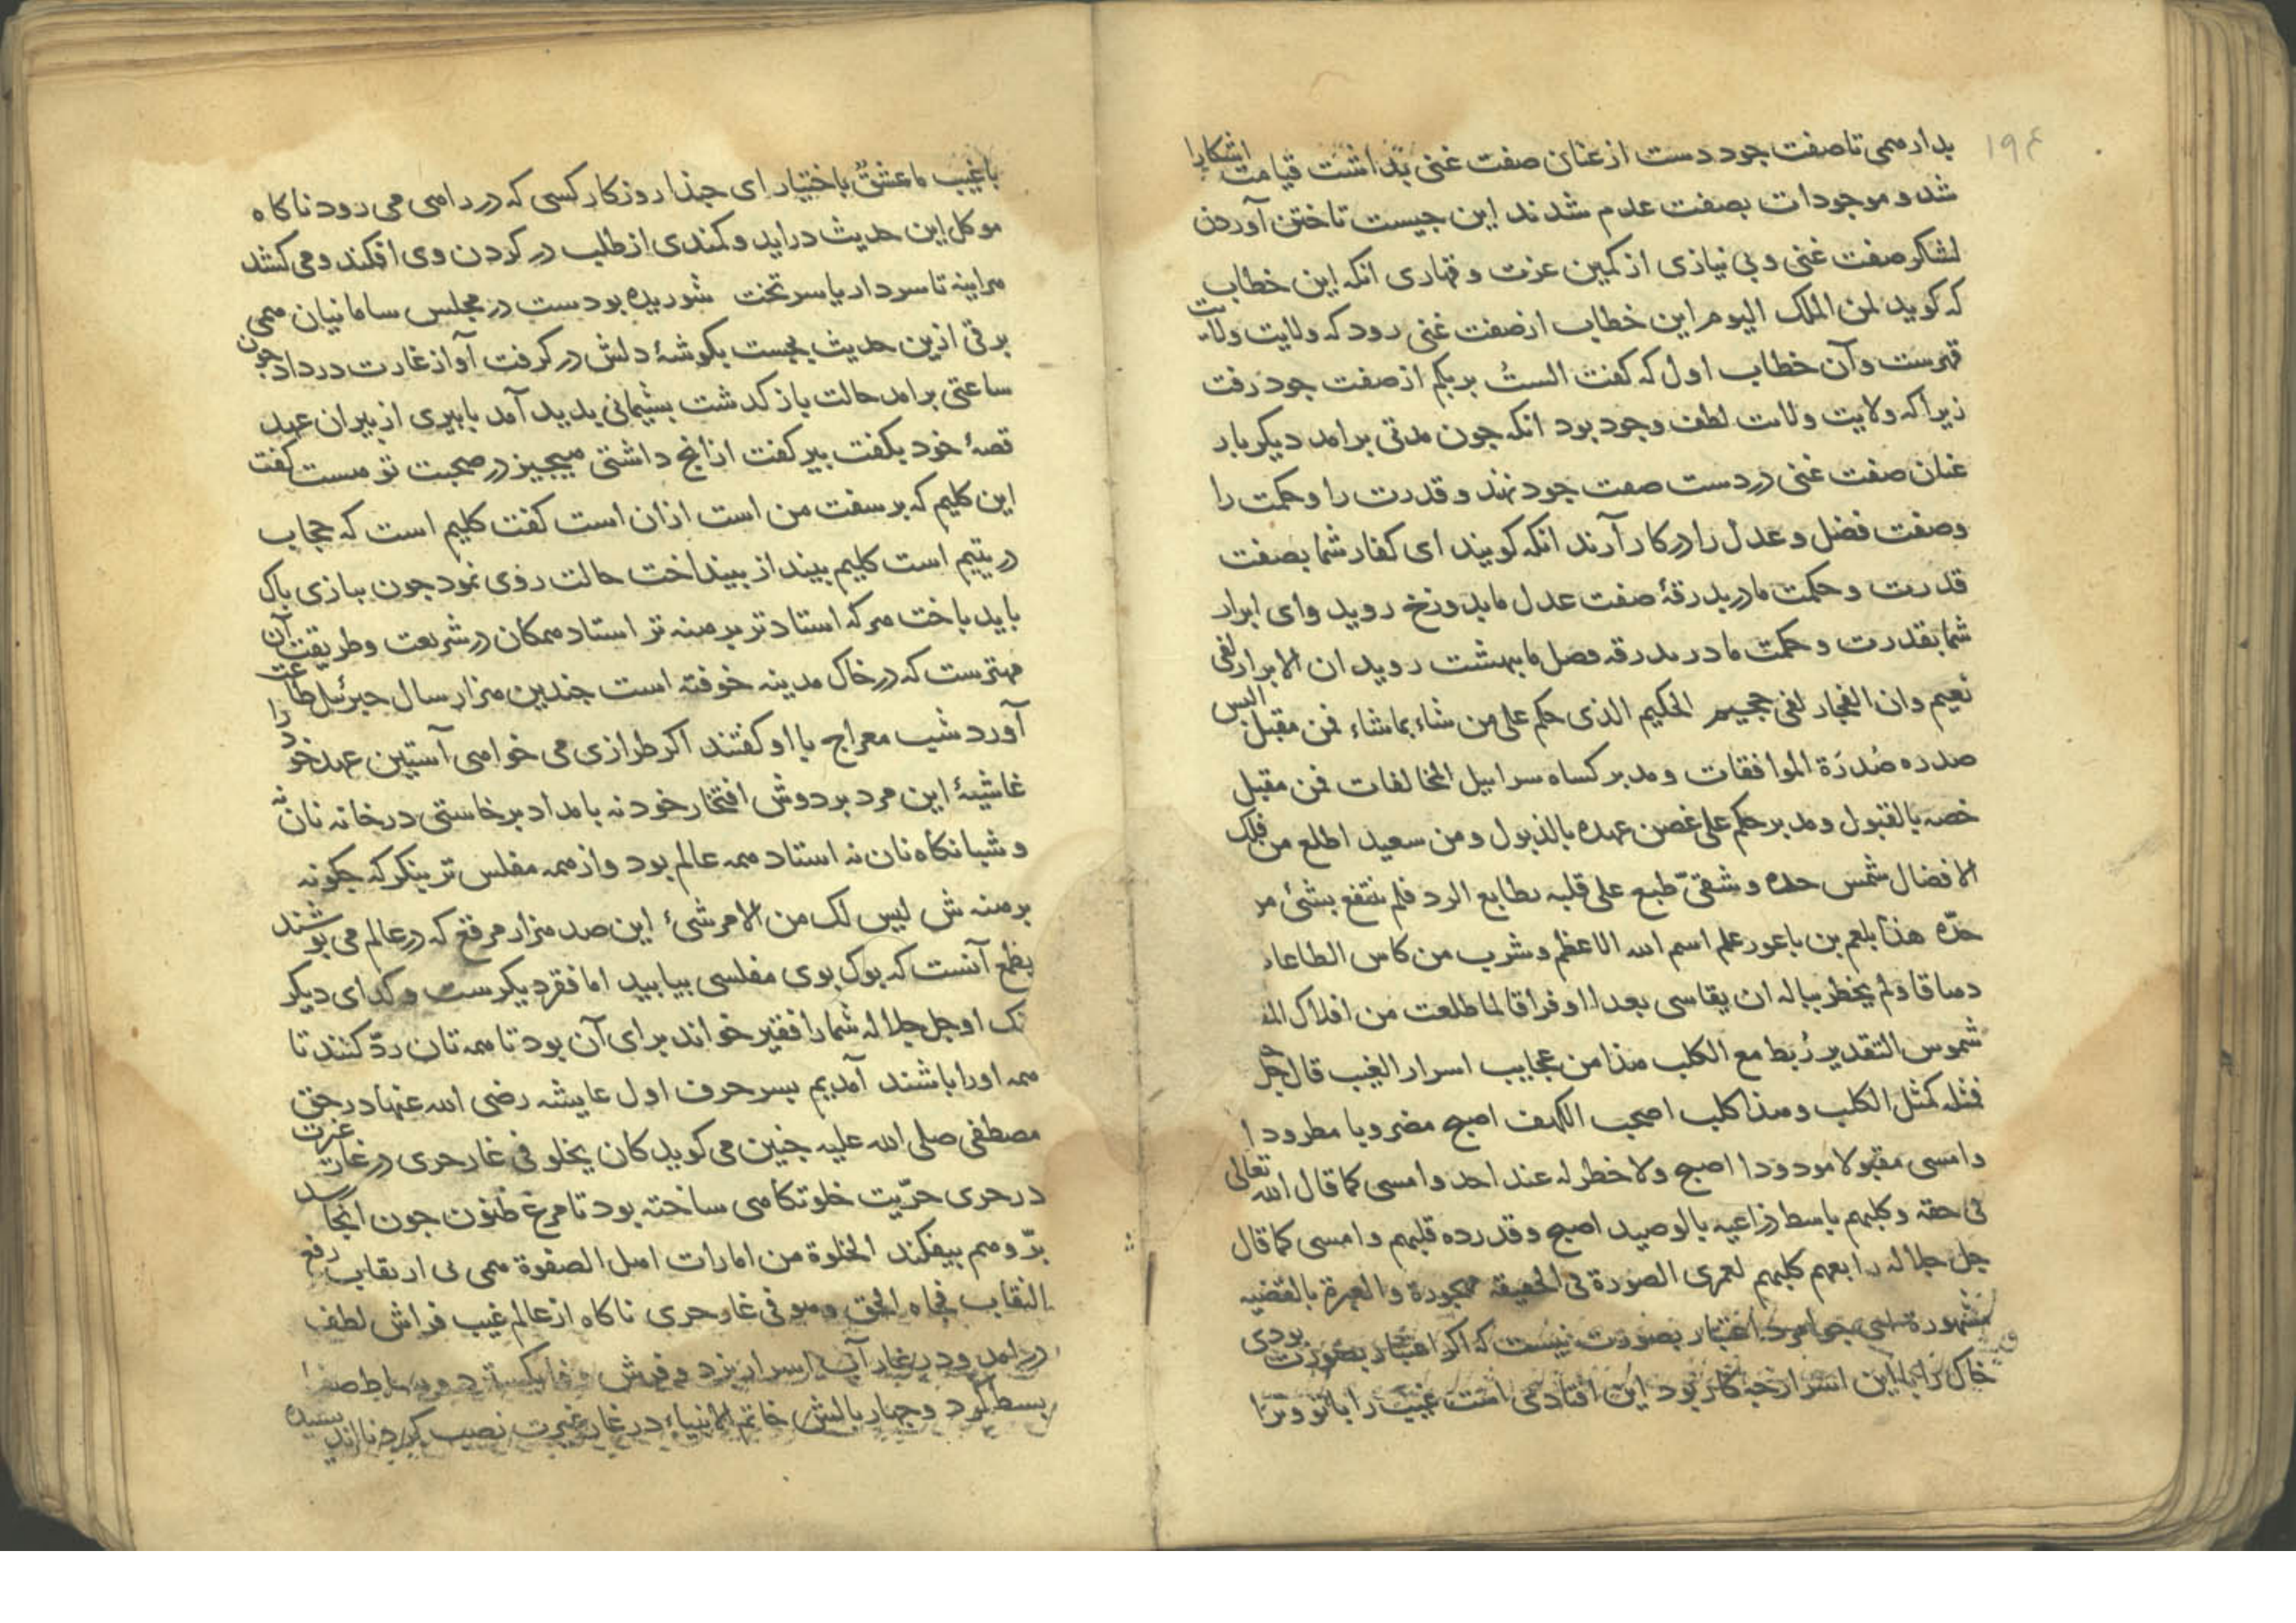 ۱۹۴
بدار همی تا صفت جود دست از عنان صفت غنی بداشت قیامت اشکارا
شد و موجودات بصفت عدم شدند این جیست تاختن آوردن
لشکر صفت غنی و بی نیازی از کمین عزت و قهاری انکه این خطاب
که کوید لمن الملک الیوم این خطاب از صفت غنی رود که ولایت ولایت
قهرست و آن خطاب اول که کفت الستُ بربکم از صفت جود رفت
زیرا که ولایت ولایت لطف وجود بود انکه جون مدتی برامد دیکر بار
عنان صفت غنی در دست صفت جود نهند و قدرت را و حکمت را
و صفت فضل و عدل را در کار آرند انکه کویند ای کفار شما بصفت
قدرت و حکمت ما در بدرقۀ صفت عدل ما بدوزخ روید و ای ابرار
شما بقدرت و حکمت ما در بدرقه فضل ما ببهشت روید ان الابرار لفی
نعیم وان الفجار لفی جحیم الحکیم الذی حکم علی من شاء بما شاء فمن مقبل البس
صدره صُدرَة الموافقات و مدبر کساه سرابیل المخالفات فمن مقبل
خصه بالقبول و مدبر حکم علی غصن عهده بالذبول و من سعید اطلع من فلک
الافضال شمس حده و شقیّ طبع علی قلبه بطابع الرد فلم ینتفع بشئ من
حدّه هذا بلعم بن باعور علم اسم الله الاعظم و شرب من کاس الطاعات
دهاقا و لم یخطر بباله ان یقاسی بعدا او فراقا لما طلعت من افلاک
شموس التقدیر رُبط مع الکلب هذا من عجایب اسرار الغیب قال جل
فمثله کمثل الکلب و هذا کلب اصحب الکهف اصبح مضروبا مطرودا
و امسی مقبولا مودودا اصبح ولا خطر له عند احد و امسی کما قال الله تعالی
فی حقه و کلبهم باسط ذراعیه بالوصید اصبح و قد رده قلبهم و امسی کما قال
جل جلاله رابعهم کلبهم لعمری الصورة فی الحقیقه مهجورة و العبرة بالقضیه
مشهورة ای جوامرد اعتبار بصورت نیست که اکر اعتبار بصورت بودی
خاک را با این اسرار جه کار بود این افتادهی است غیب را با تو و ترا
با غیب ما عشقُ باختیار ای جبذا روزکار کسی که در راهی می رود ناکاه
موکل این حدیث دراید و کمندی از طلب در کردن وی افکند و می کشد
هراینه تا سر دار یا سر تخت شوریده بودست در مجلس سامانیان همی
برقی ازین حدیث بجست بکوشۀ دلش در کرفت آواز غارت در داد جون
ساعتی برامد حالت باز کدشت بشیمانی بدید آمد با بیری از بیران عهد
قصۀ خود بکفت بیر کفت از انج داشتی هیجیز در صحبت تو هست کفت
این کلیم که بر سفت من است ازان است کفت کلیم است که حجاب
در یتیم است کلیم بینداز بینداخت حالت روی نمود جون ببازی باک
باید باخت هر که استاد تر برهنه تر استاد همکان در شریعت و طریقت آن
مهترست که در خاک مدینه خوفته است جندین هزار سال جبرئیل طاعت
آورد شب معراج با او کفتند اکر طرازی می خواهی آستین عهد خود را
غاشیۀ این مرد بر دوش افتخار خود نه بامداد برخاستی در خانه نان نه
و شبانکاه نان نه استاد همه عالم بود و از همه مفلس تر بنکر که جکونه
برهنه ش لیس لک من الامر شئ این صد هزار مرقع که در عالم می بوشند
بطمع آنست که بوک بوی مفلسی بیابید اما فقر دیکرست و کدای دیکر
نک او جل جلاله شما را فقیر خواند برای آن بود تا همه تان ردّ کنند تا
همه اورا باشند آمدیم بسر حرف اول عایشه رضی الله عنها در حق
مصطفی صلی الله علیه جنین می کوید کان یخلو فی غار حری در غار غیرت
در حری حرّیت خلوتکاهی ساخته بود تا مرغ ظنون جون انجا رسد
برّ وهم بیفکند الخلوة من امارات اهل الصفوة همی بی ارتقاب رفع
النقاب فجاه الحق و هو فی غار حری ناکاه از عالم غیب فراش لطف
درامد و در غار آب اسرار بزد و فرش وفا بکسترد و بساط صفا
بسط کرد و جهار بالش خاتم الانبیاء در غار غیرت نصیب کرد